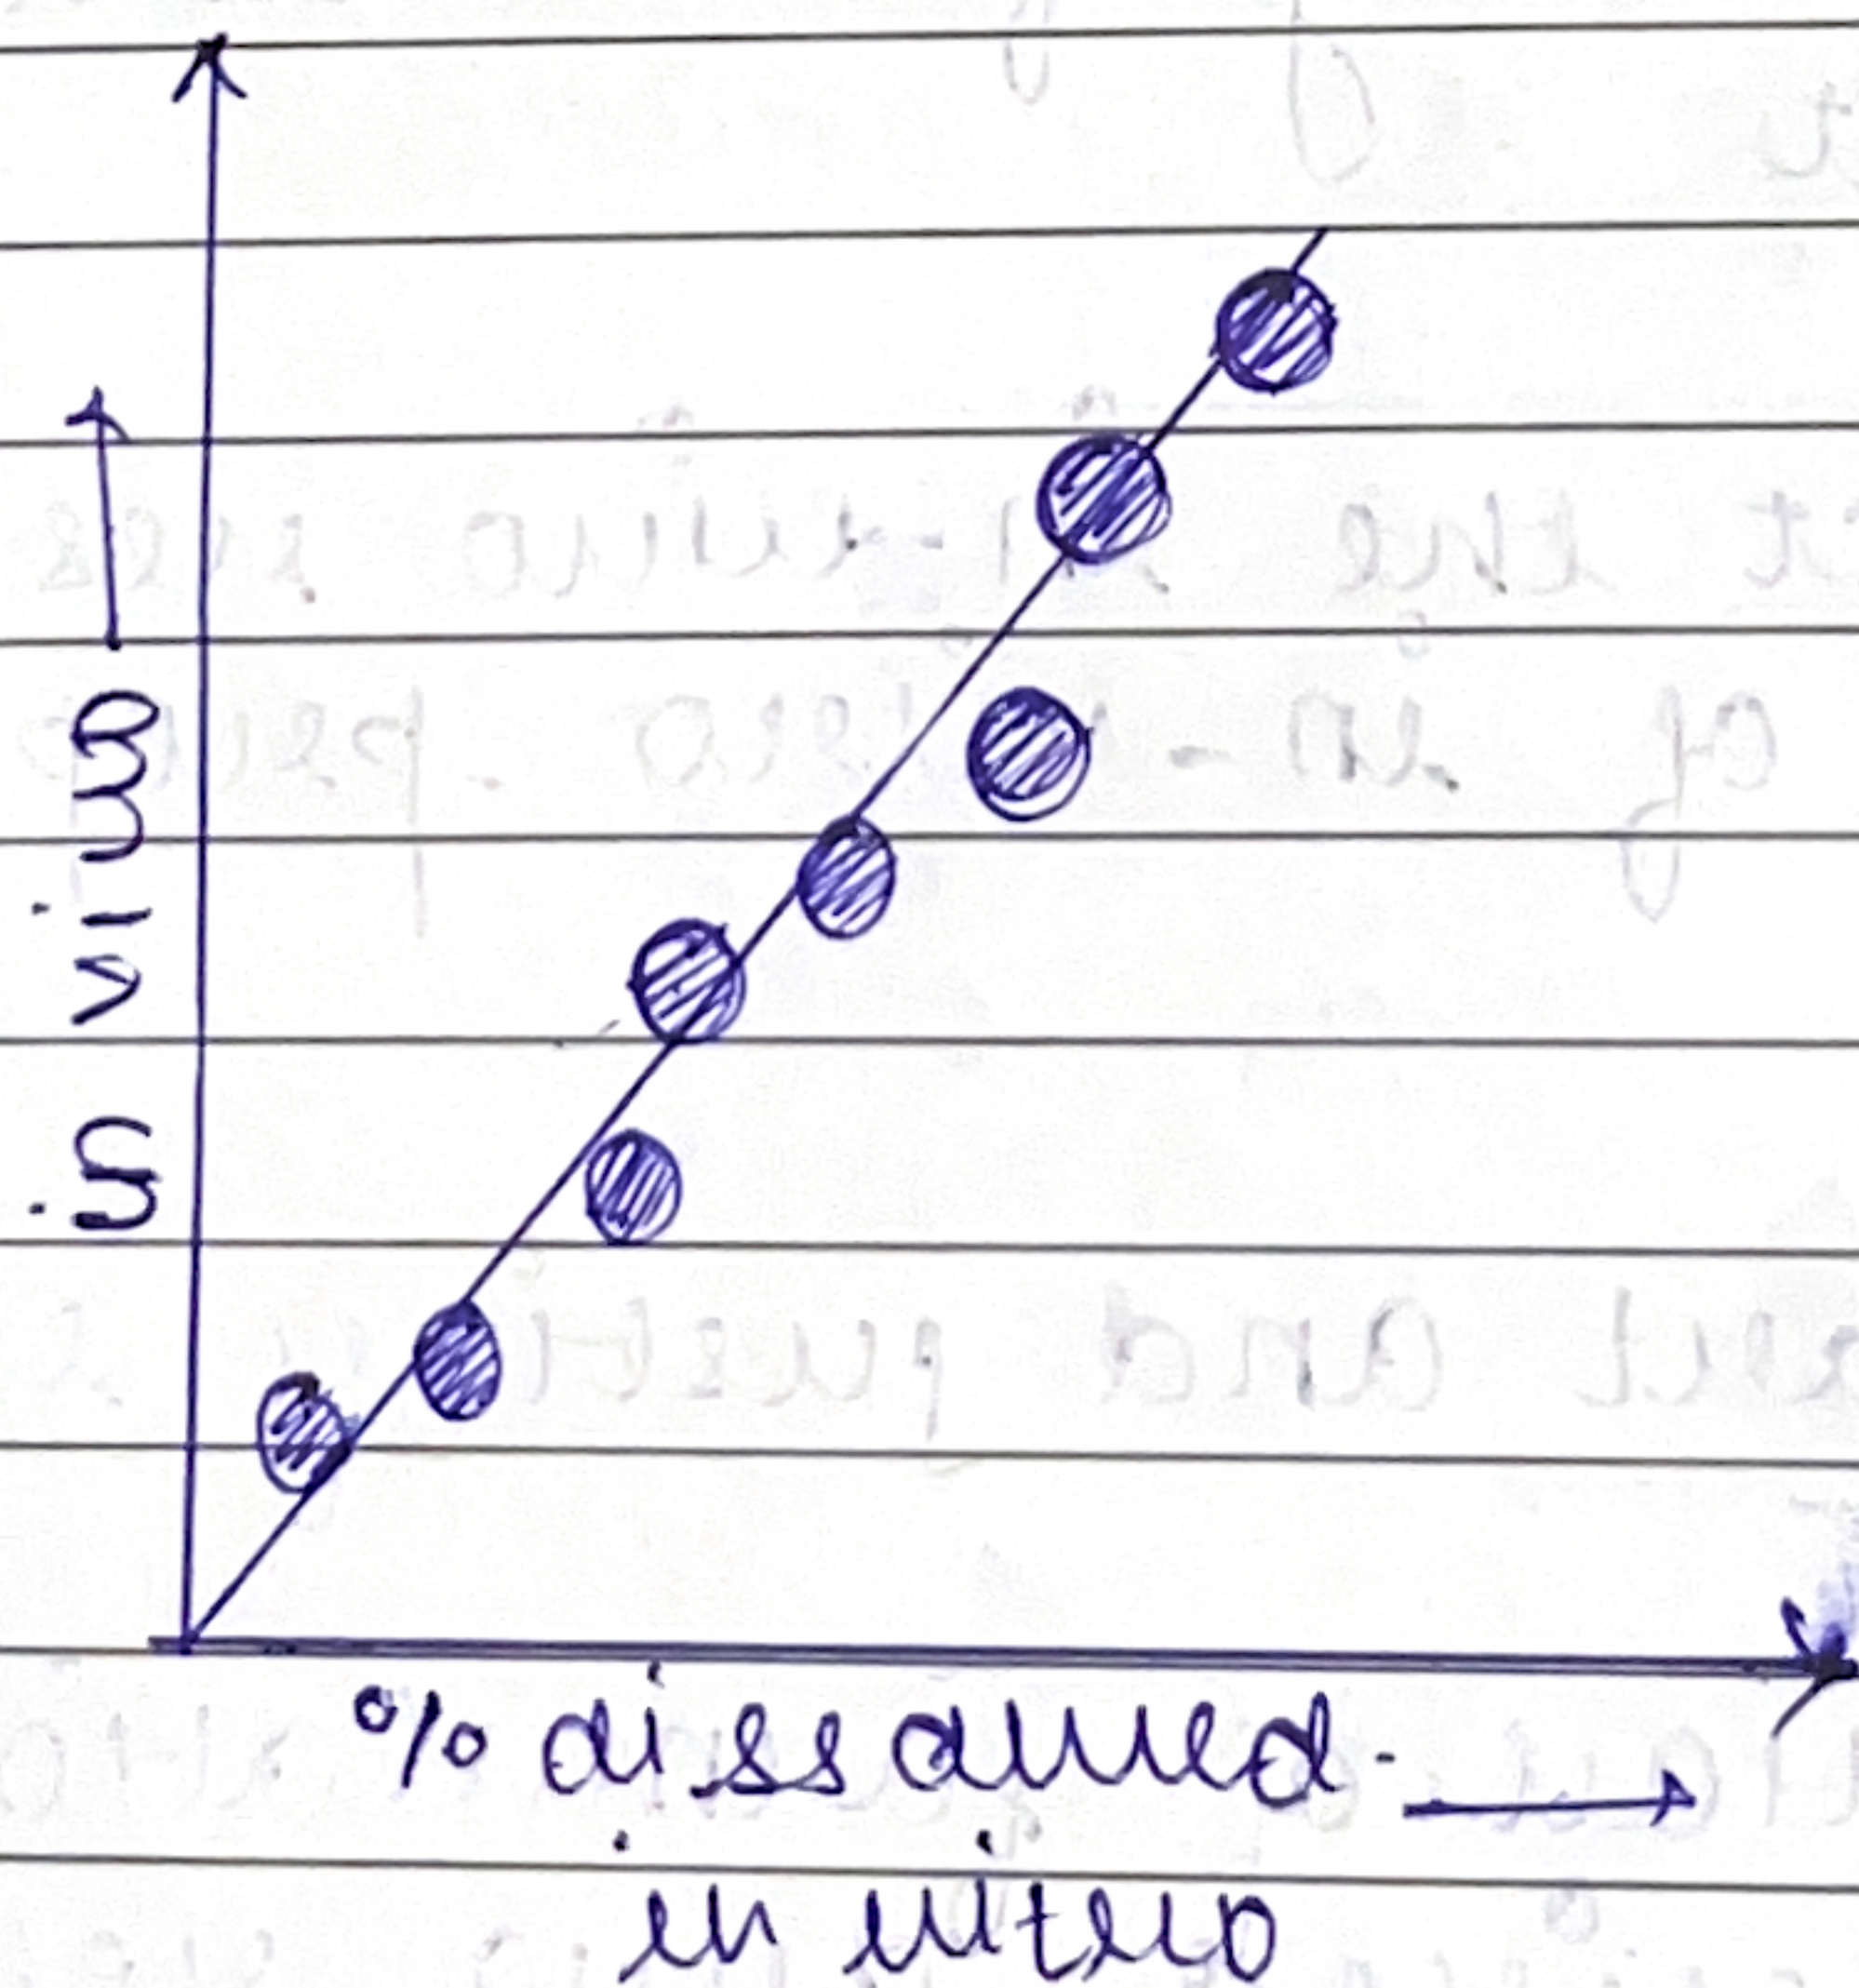 in vivo
% dissolved.
in vitro